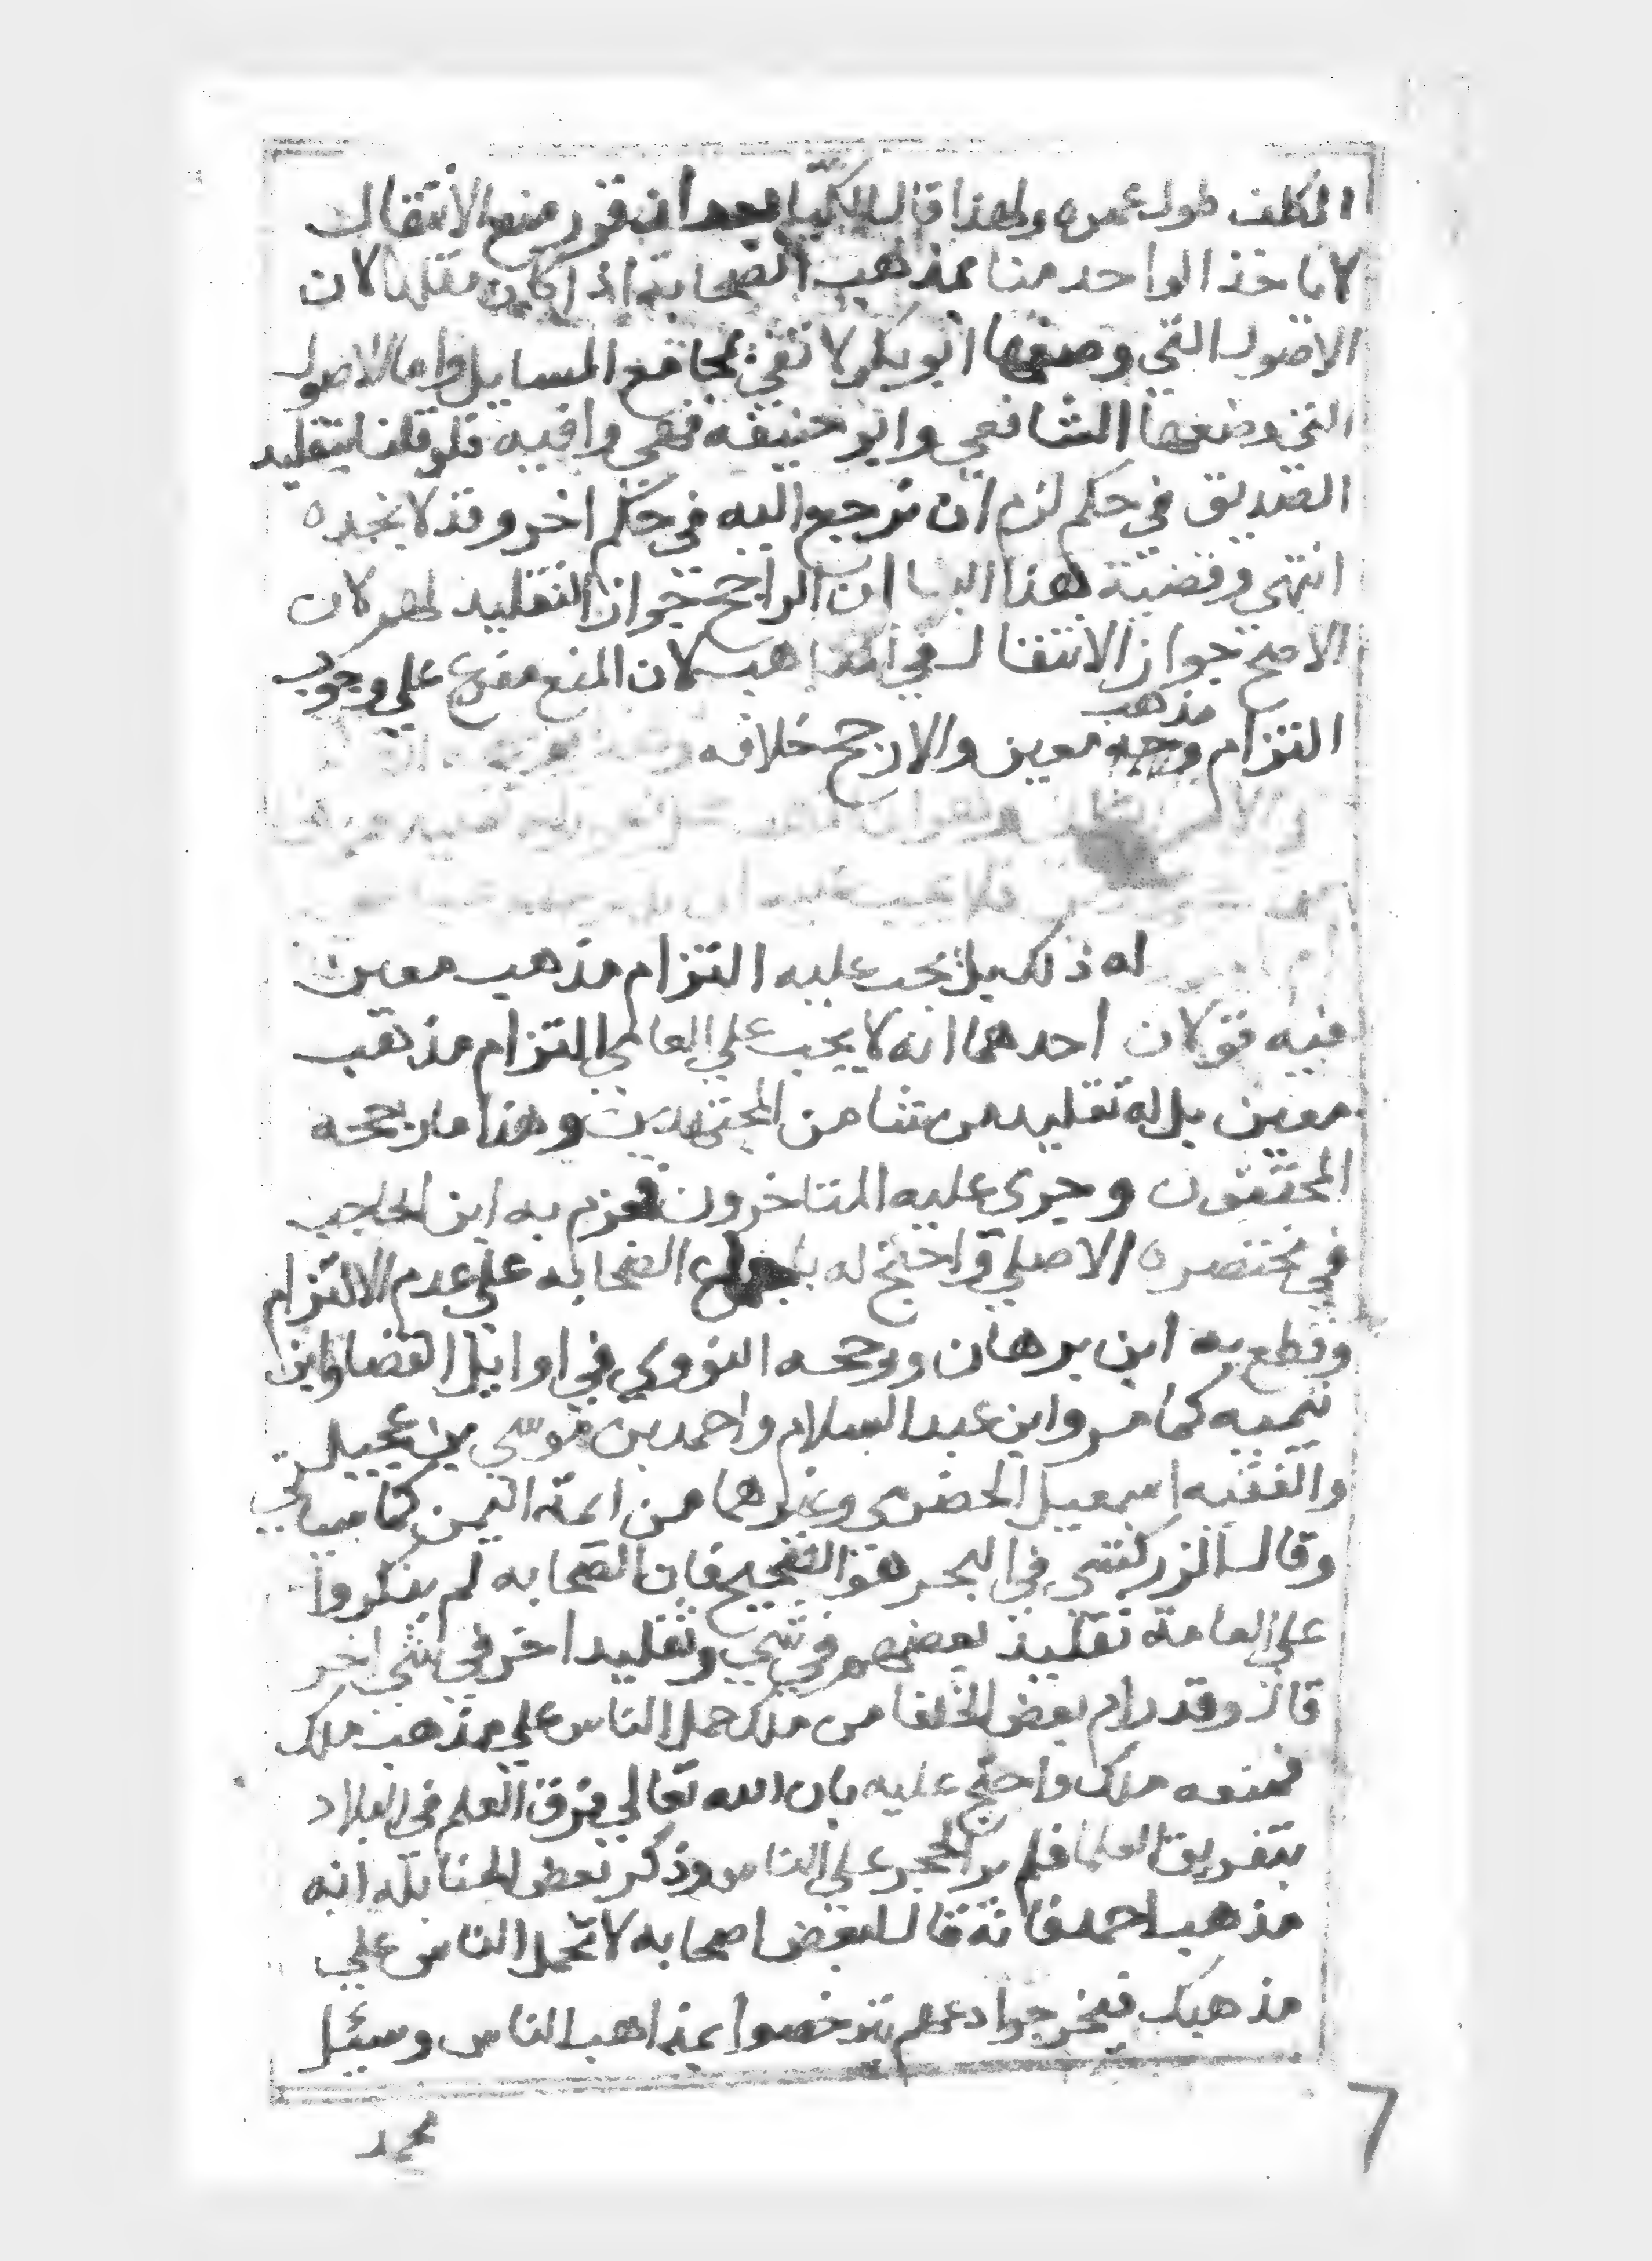 المكلف طول عمره ولهذا قال الكيا بعد ان قرر منع الانتقال
لا ياخذ الواحد منا بمذهب الصحابة اذا كان مقلدا لان
الاصول التي وضعها ابو بكر لا تفي بمجامع المسايل واما الاصول
التي وضعها الشافعي وابو حنيفه فهي وافيه فلو قلنا بتقليد
الصديق في حكم لزم ان نرجع اليه في حكم اخر وقد لا نجده
انتهى وقضية هذا البنا ان الراجح جواز التقليد لهم لان
الاصح جواز الانتقال في المذاهب لان المنع مفرع على وجوب
التزام مذهب معين والارجح خلافه
فلا يجب عليه ان
له ذلك بل يجب عليه التزام مذهب معين
فيه قولان احدهما انه لا يجب على العامي التزام مذهب
معين بل له تقليد من شا من المجتهدين وهذا ما رجحه
المحققون وجرى عليه المتاخرون فجزم به ابن الحاجب
في مختصره الاصلي واحتج له باجماع الصحابه على عدم الالتزام
وقطع به ابن برهان ورجحه النووي في اوايل القضا وابن
تيميه كما مر وابن عبد السلام واحمد بن موسى بن عجيل
والفقيه اسمعيل الحضرمي وغيرهما من ايمة اليمن كما سياتي
وقال الزركشي في البحر هو الصحيح فان الصحابه لم ينكروا
على العامة تقليد بعضهم في شي وتقليد اخر في شي اخر
قال وقد رام بعض الخلفا من ملك حمل الناس على مذهب ملك
فمنعه ملك واحتج عليه بان الله تعالى فرق العلم في البلاد
بتفريق العلما فلم ير الحجر على الناس وذكر بعض الحنابله انه
مذهب احمد فانه قال لبعض اصحابه لا تحمل الناس على
مذهبك فيحرجوا دعهم يترخصوا بمذاهب الناس وسئل
محمد
7